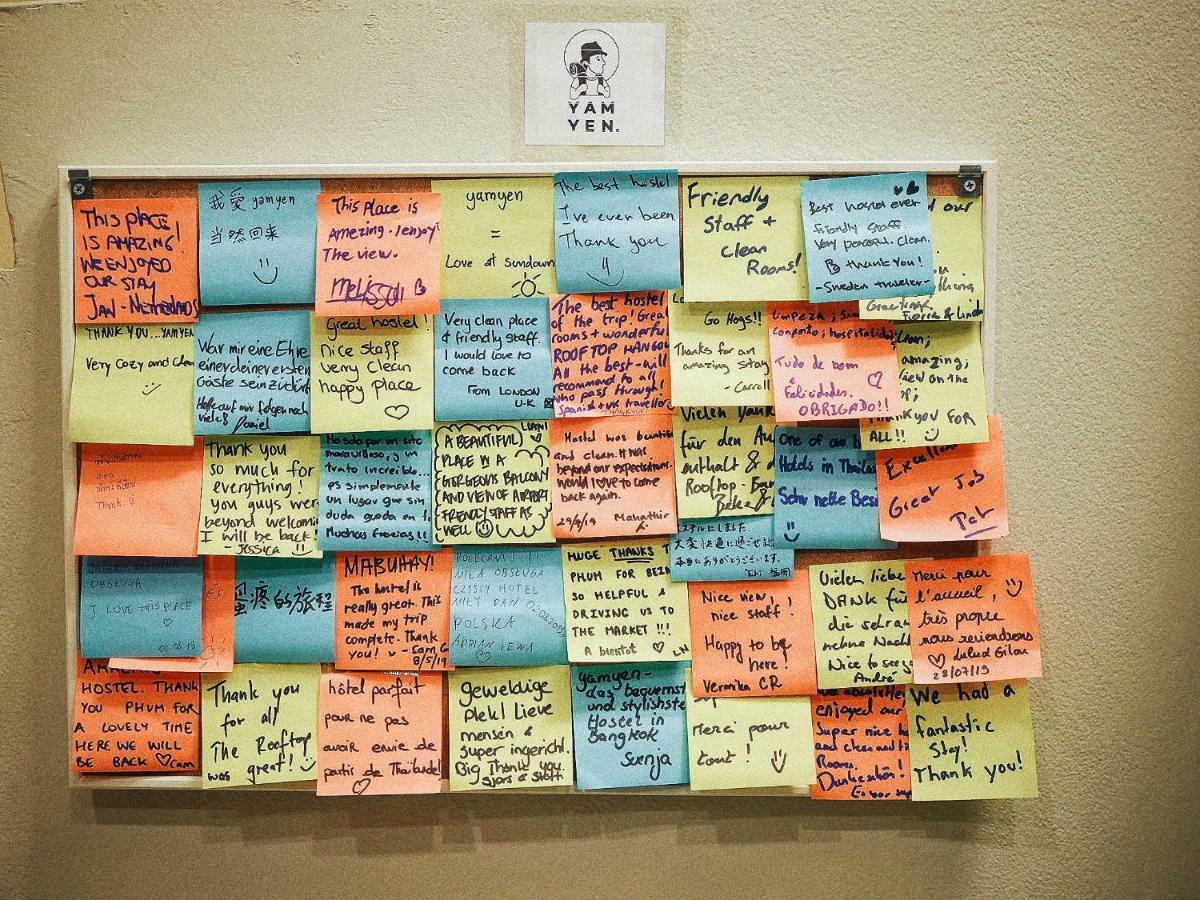 YAM
YEN.
THIS PLACE
IS AMAZING!
WE ENJOYED
OUR STAY
JAN - NETHERLANDS
我爱 yamyen
当然回来
This Place is
Amezing. I enjoy
The view.
Melissa
yamyen
=
Love at sundown
The best hostel
I've ever been
Thank you
Friendly
Staff +
clean
Rooms!
Best hostel ever
friendly staff.
Very peaceful. Clean.
thank you!
- Sweden traveler -
THANK YOU...YAMYEN
Very Cozy and clean
War mir eine Ehre
einer deiner ersten
Gäste sein zu dürf
Daniel
Great hostel!
nice staff
very clean
happy place
Very clean place
& friendly staff.
I would love to
come back
From LONDON
U.K
The best hostel
of the trip! Great
rooms + wonderful
ROOFTOP HANGOU
All the best - will
recommend to all
who pass through!
Spanish + uk travellers
Go Hogs!!
Thanks for an
amazing stay
- Carroll
Limpeza; Sim
conforto; hospitalida
Tudo de bom
é
Felicidades.
OBRIGADO!!
amazing;
view on the
Thank you FOR
ALL!!
Thank you
so much for
everything!
you guys wer
beyond welcomi
I will be back!
- Jessica
Ha sido por un sitio
maravilloso, y un
trato increíble...
es simplemente
un lugar que sin
duda
Muchas Gracias!!
LIAN!
A BEAUTIFUL
PLACE IN A
GORGEOUS BALCONY
AND VIEW OF AIRPORT
FRIENDLY STAFF AS
WELL
Hostel was beautif
and clean. It was
beyond our expectations.
Would love to come
back again.
29/4/19 Mahathir
Vielen Dank
für den Au
enthalt & d
Rooftop-
One of our b
Hotels in Thailan
Sehr nette Besi
Excellen
Great Job
Pat
OBSŁUGA
I LOVE THIS PLACE
02.08.19
蛋疼的旅程
MABUHAY!
The hostel is
really great. This
made my trip
complete. Thank
you! - Sam G
8/5/19
POLECAM!!!!
MIŁA OBSŁUGA
CZYSTY HOTEL
MIŁY PAN
POLSKA
ADRIAN EWA
HUGE THANKS T
PHUM FOR BEIN
SO HELPFUL &
DRIVING US TO
THE MARKET !!!
A bientot
ステルにしました
大変快適に過ごせまし
本当にありがとうございます。
Nice view,!
nice staff.
Happy to be
here!
Veronika CR
Vielen liebe
DANK fü
die sehr an
nehme Nach
Nice to see y
André
Merci pour
l'accueil,
très propre
nous reviendrons
28/07/19
HOSTEL. THANK
YOU PHUM FOR
A LOVELY TIME
HERE WE WILL
BE BACK cam
Thank you
for all
The Rooftop
was great!
hôtel parfait
pour ne pas
avoir envie de
partir de Thaïlande!
geweldige
plek! Lieve
mensen &
super ingericht.
Big Thank you.
yamyen-
das bequemst
und stylishste
Hostel in
Bangkok
Svenja
Merci pour
tout!
enjoyed our
Super nice h
and clean and
Rooms.
Dankeschön!
We had a
fantastic
Stay!
Thank you!